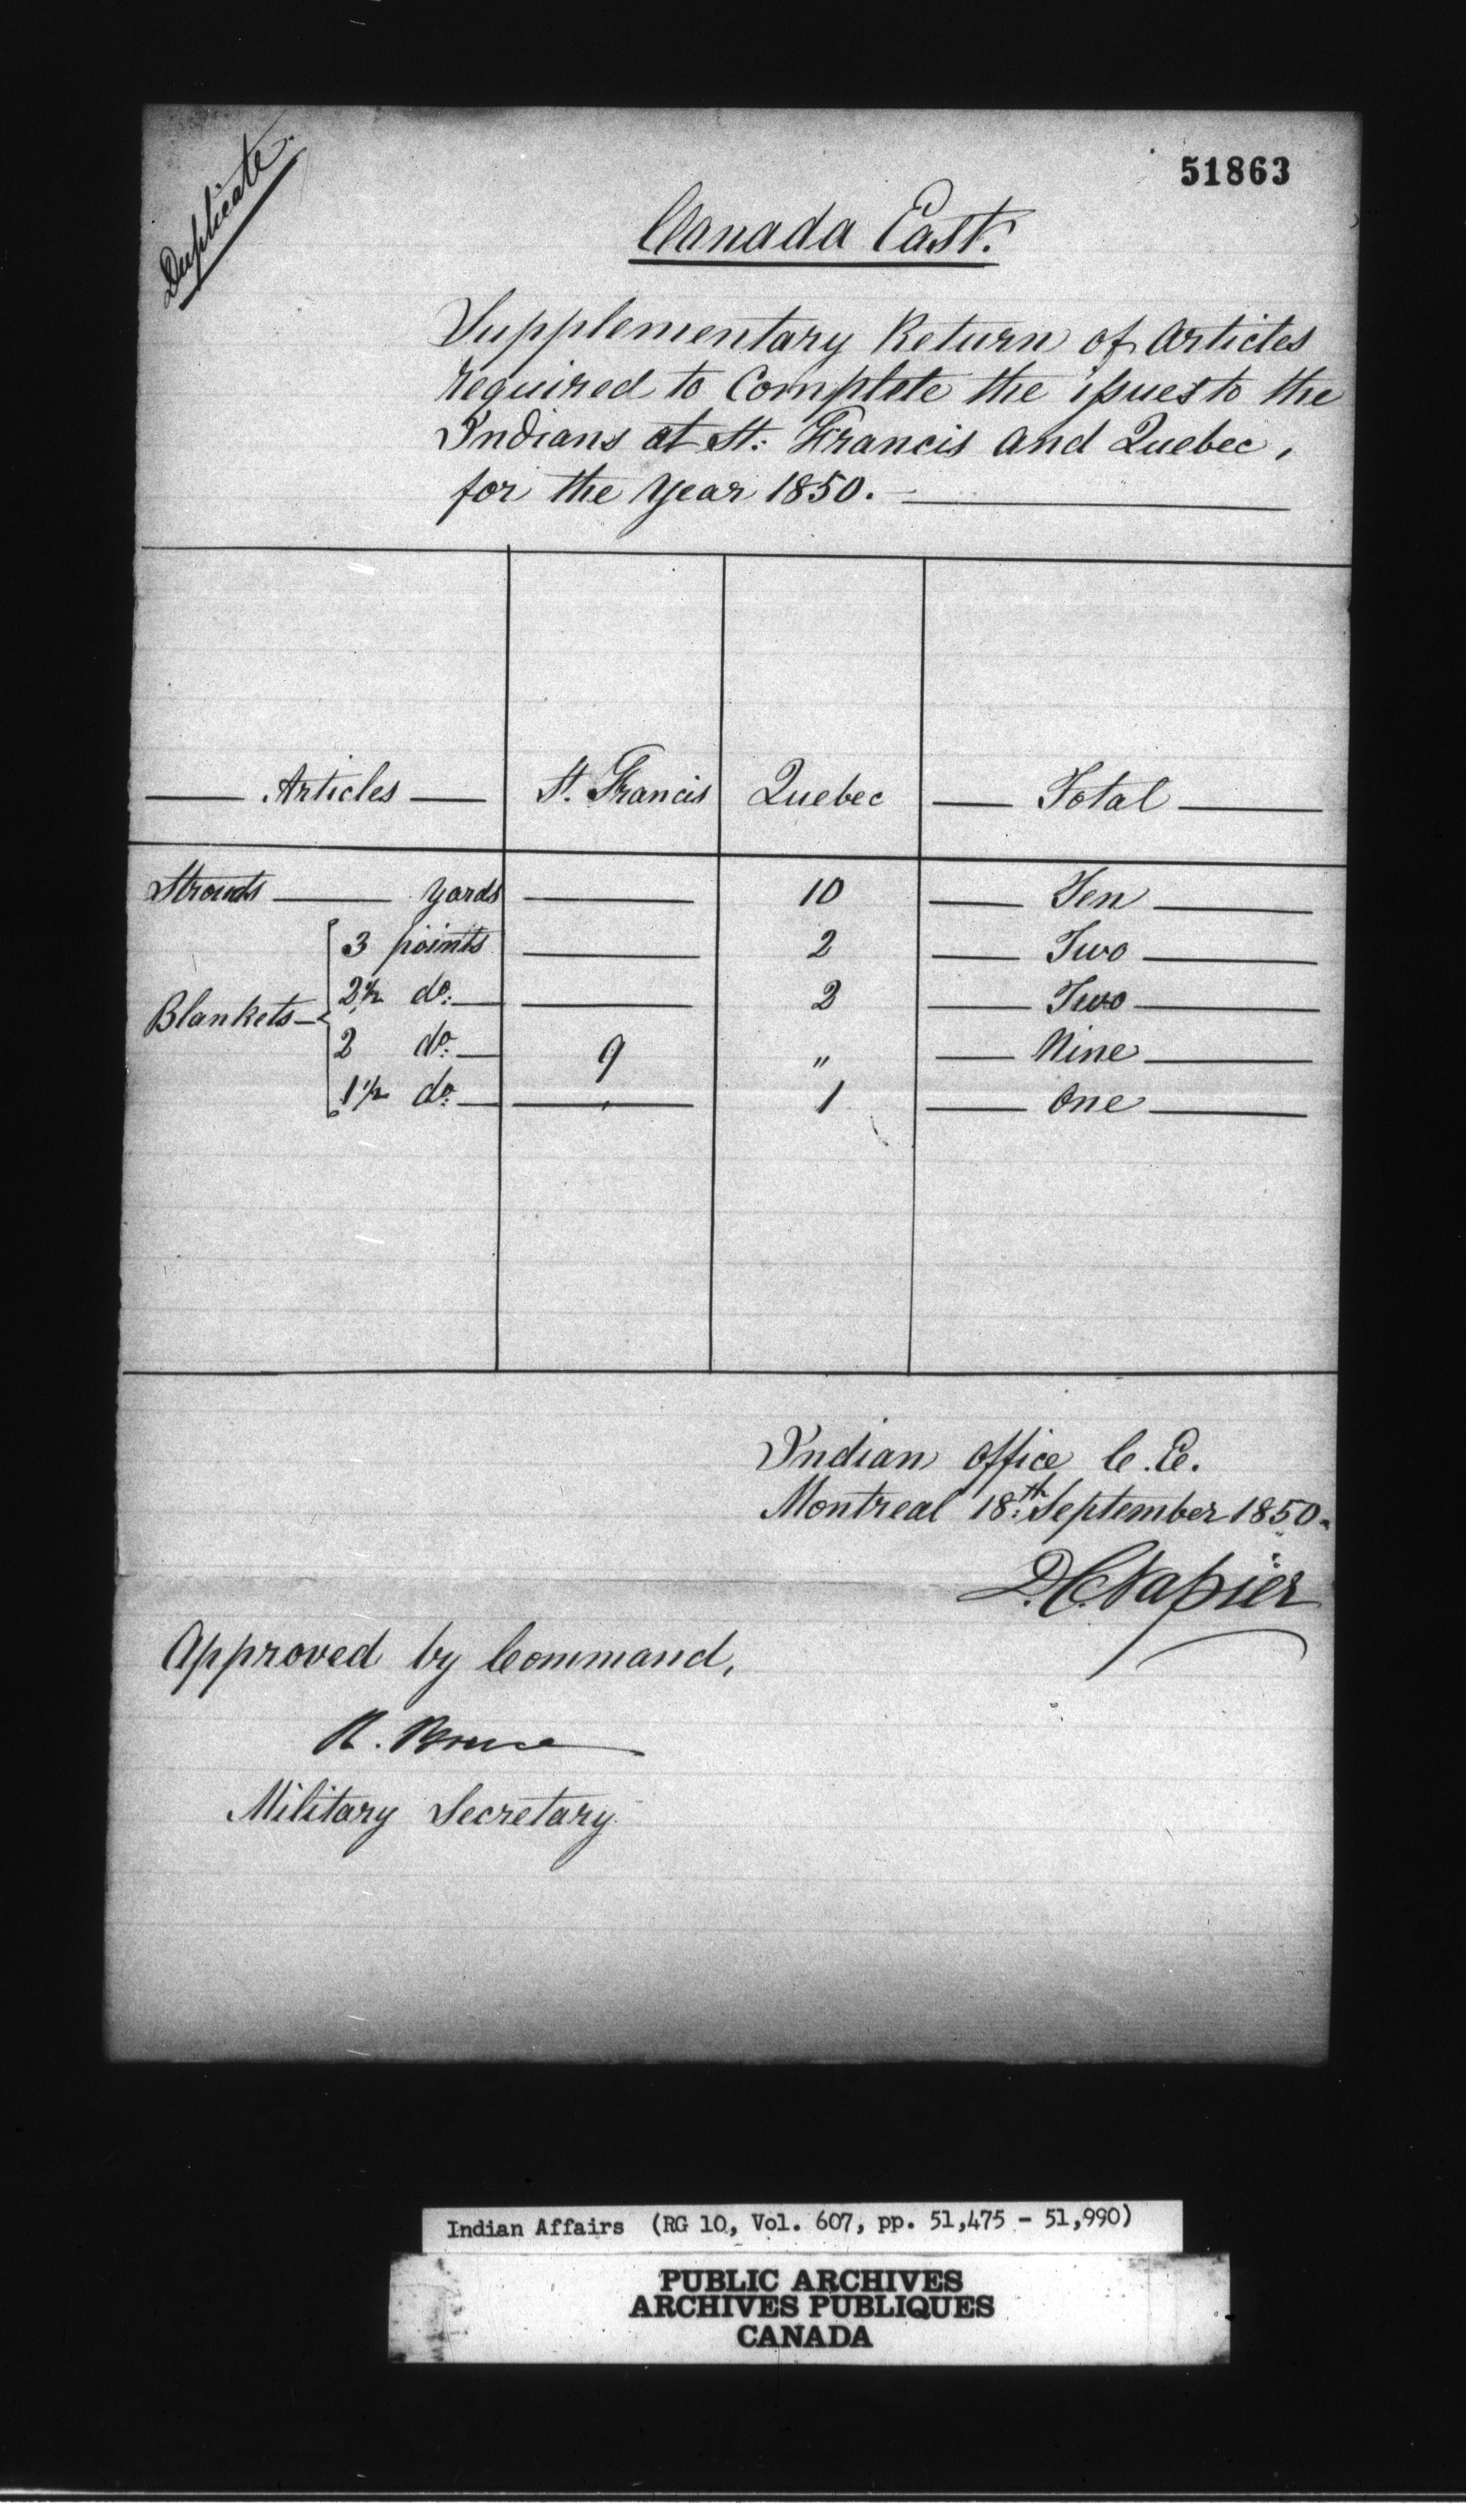 Duplicate.
51863
Canada East.
Supplementary Return of Articles
required to Complete the issues to the
Indians at St: Francis and Quebec,
for the Year 1850. —
Articles St. Francis Quebec Total
Strouds — yards — 10 — Ten —
Blankets
3 points — 2 — Two —
2½ do: — — 2 — Two —
2 do: — 9 " — Nine —
1½ do: — — 1 — One —
Indian Office C.E.
Montreal 18th: September 1850.
D.C. Napier
Approved by Command,
R. Bruce
Military Secretary
Indian Affairs (RG 10, Vol. 607, pp. 51,475 - 51,990)
PUBLIC ARCHIVES
ARCHIVES PUBLIQUES
CANADA